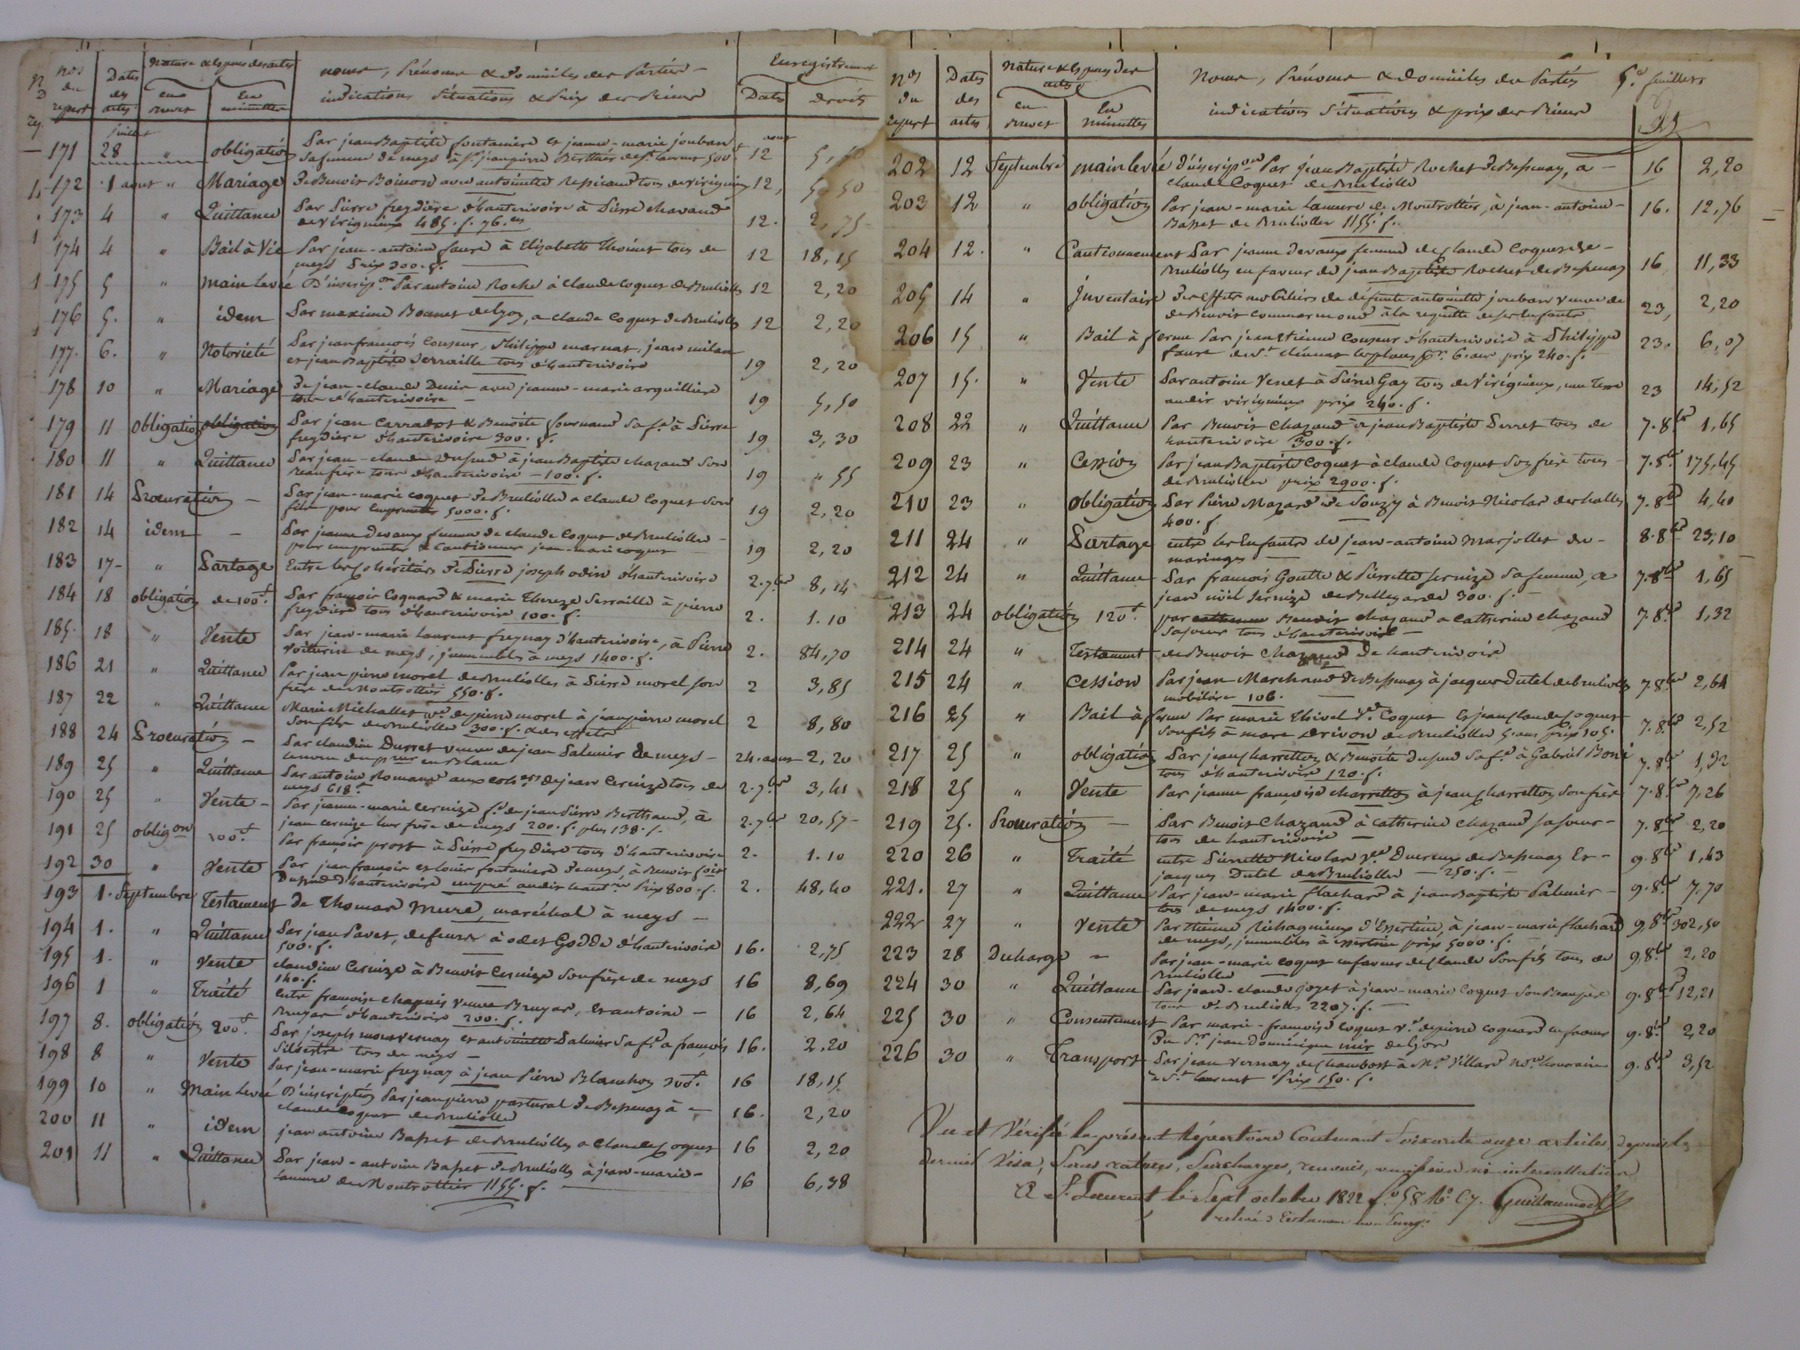 Nos du repert
Dates des actes
nature & especes des actes
en brevet
en minutte
noms, Prénoms & Domiciles des Parties
indications Situations & Prix des Biens
Enregistrement
Dates
droits
juillet
171 28 " obligation Par jean Baptiste fontaniere et jeanne-marie joubard
sa femme de meys à 500 f 12 aout
172 1 aout " Mariage De Benoit avec antoinette tous de virigneux 12, 5,50
173 4 " Quittance Par Pierre freydiere d'hauterivoire à Pierre chavand
de virigneux 485. f. 76. 12. 2,75
174 4 " Bail à Vie Par jean-antoine faure à Elizabeth Thoinet tous de
meys Prix 300. f. 12 18,15
175 5 " Main levée D'inscripon Par antoine Roche à Claude Coquet de Brullioles 12 2,20
176 5. " idem Par maxime Bonnet de Lyon, a Claude Coquet de Brullioles 12 2,20
177. 6. " Notorieté Par jean françois Couzeur, Philippe marnat, jean milan
et jean Baptiste Serraille tous d'hauterivoire 19 2,20
178 10 " Mariage De jean-claude Denis avec jeanne-marie arquilliere
tous d'hauterivoire 19 5,50
179 11 obligation obligation Par jean Carradot & Benoite fournand sa fe. à Pierre
freydiere d'hauterivoire 300. f. 19 3,30
180 11 " Quittance Par jean-claude Dupud à jean Baptiste chazaud son
Beau frere tous d'hauterivoire 100. f. 19 " 55
181 14 Procuration - Par jean-marie coquet de Brulliolle a Claude Coquet son
fils pour Emprunter 5000. f. 19 2,20
182 14 idem - Par jeanne Devaux femme de claude Coquet de Brulliolle
pour emprunter & Cautionner jean-marie coquet 19 2,20
183 17 - " Partage Entre les Cohéritiers de Pierre joseph odin d'hauterivoire 2.7bre 8,14
184 18 obligation de 100 f Par françois Cognard & marie Thereze Serraille à pierre
freydiere tous d'hauterivoire 100. f. 2. 1.10
185. 18 " Vente Par jean-marie laurent freynay d'hauterivoire, à Pierre
Voiturin de meys, immeubles à meys 1400. f. 2. 84,70
186 21 " Quittance Par jean pierre morel de Brullioles à Pierre morel son
frere de Montrottier 550. f. 2 3,85
187 22 " Quittance Marie Michallet ve. de pierre morel à jean pierre morel
son fils de Brulliolle 300. f. & des effets 2 8,80
188 24 Procuration - Par claudine Durret veuve de jean Palmier de meys -
en Blanc 24. aout 2,20
189 25 " Quittance Par antoine Romand aux cohers de jean Cernize tous de
meys 618 f 2.7bre 3,41
190 25 " Vente - Par jeanne-marie cernize fe. de jean Pierre Berthaud, à
jean cernize leur frere de meys 200. f. plus 138. f. 2.7bre 20,57
191 25 obligon 100 f Par françois prost à Pierre freydiere tous d'hauterivoire 2. 1.10
192 30 " Vente Par jean françois et louis fontaniere de meys, à Benoit
Dupud d'hauterivoire un pré audit Prix 800. f. 2. 48,40
193 1. Septembre Testament de Thomas Mure, maréchal à meys -
194 1. " Quittance Par jean Pavet, à odet Godde d'hauterivoire
500. f. 16. 2,75
195 1. " Vente claudine Cernize à Benoit Cernize son frere de meys
140. f. 16 8,69
196 1 " Traité Entre françoise chapuis veuve Bruyas, et antoine
Bruyas d'hauterivoire 200. f. 16 2,64
197 8. obligation 200 f Par joseph monvernay et antoinette Palmier sa fe. a françois
Silvestre tous de meys 16. 2.20
198 8 " Vente Par jean-marie freynay à jean Pierre Blanchon 300 f. 16 18,15
199 10 " Main levée D'inscription Par jean pierre pastural de Bessenay à -
claude coquet de Brulliolle 16. 2,20
200 11 " idem jean antoine Basset de Brullioles a Claude Coquet 16 2,20
201 11 " Quittance Par jean-antoine Basset de Brullioles à jean-marie
Lameure de Montrottier 1155. f. 16 6,38
Nos du repert
Dates des actes
Nature & Especes des actes
en brevet
en minuttes
Noms, Prénoms & domiciles des Parties
5e feuillets
indications Situations & prix des Biens
202 12 Septembre main levée d'inscripon Par Jean Baptiste Rochet de Bessenay, à -
claude Coquet de Brulliolle 16 2,20
203 12 " obligation Par jean-marie Lameure de Montrottier, à jean-antoine
Basset de Brulliolles 1155. f. 16. 12,76
204 12. " Cautionnement Par jeanne Devaux femme de claude Coquet de
Brulliolles en faveur de jean Baptiste Rochet de Bessenay 16 11,33
205 14 " Inventaire Des effets mobiliers de défunte antoinette joubard veuve de
de Benoit Commarmond à la requette de ses Enfants 23, 2,20
206 15 " Bail à ferme Par jean Etienne Couzeur d'hauterivoire à Philippe
faure de St. clément 6 ans prix 240. f. 23. 6,07
207 15. " Vente Par antoine Venet à Pierre Gay tous de Virigneux, une Terre
audit virigneux prix 240. f. 23 14,52
208 22 " Quittance Par Benoit Chazaud a jean Baptiste Perret tous de
hauterivoire 300. f. 7.8bre 1,65
209 23 " Cession Par jean Baptiste Coquet à claude Coquet son frere tous
de Brulliolles prix 2900. f. 7.8bre 175,45
210 23 " obligation Par Pierre Mazard de Souzy à Benoit Nicolas des halles
400. f. 7.8bre 4,40
211 24 " Partage entre les Enfants de jean-antoine Marjollet de
maringes 8.8bre 23,10
212 24 " Quittance Par françois Goutte & Pierrette sernize sa femme, a
jean noël Sernize de Bellegarde 300. f. 7.8bre 1,65
213 24 obligation 120 f par Benoit chazaud a catherine chazaud
sa soeur tous d'hauterivoire 7.8bre 1,32
214 24 " Testament de Benoit Chazaud de hauterivoire
215 24 " Cession Par jean Marchand de Bessenay à jacques Dutel de brullioles
mobiliere 106. 7.8bre 2,64
216 25 " Bail à ferme Par marie Thivel ve. Coquet et jean claude coquet
son fils à marc Drivon de Brulliolles 5 ans prix 105. 7.8bre 2,52
217 25 " obligation Par jean charretton & Benoite Dupud sa fe. à Gabriel Boné
tous d'hauterivoire 120. f. 7.8bre 1,32
218 25 " Vente Par jeanne françoise charretton à jean charretton son frere 7.8bre 7,26
219 25. Procuration - Par Benoit Chazaud à Catherine chazaud sa soeur
tous de hauterivoire - 7.8bre 2,20
220 26 " Traité entre Pierrette Nicolas ve. Ducreux de Bessenay Et -
jacques Dutel de Brulliolle - 250. f. 9.8bre 1,43
221. 27 " Quittance Par jean-marie flachard à jean Baptiste Palmier -
tous de meys 1400. f. 9.8bre 7,70
222 27 " Vente Par Etienne Richagneux d'Essertine, à jean-marie flachard
de meys, immeubles à essertine prix 5000. f. 9.8bre 302,50
223 28 Decharge - Par jean-marie coquet en faveur de claude son fils tous de
Brulliolle 9.8bre 2,20
224 30 " Quittance Par jean-claude Goyet à jean-marie Coquet son beau pere
tous de Brulliolle 2207. f. 9.8bre 12,21
225 30 " Consentement Par marie-françoise coquet ve. de pierre coquard en faveur
Du Sr. jean Dominique mir de Lyon 9.8bre 2,20
226 30 " Transport Par jean Vernay de chambost à Mr. Villard nore. honoraire
à St. Laurent Prix 150. f. 9.8bre 3,52
Vu et Vérifié le présent Répertoire Contenant Soixante onze articles, depuis le
dernier Visa, Sans ratures, Surcharges, renvois, omission ni intercallation
A St. Laurent le Sept octobre 1822 fo. 58 No. C7. Guillaumod